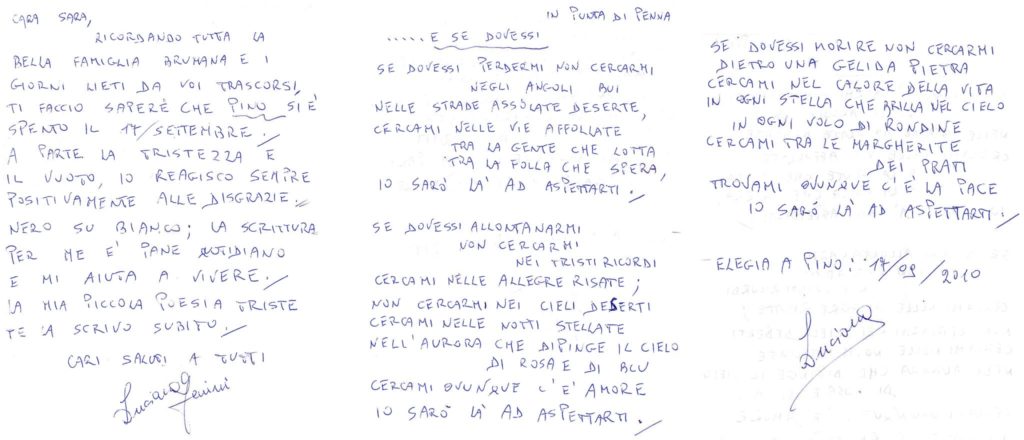 CARA SARA,
RICORDANDO TUTTA LA
BELLA FAMIGLIA BRUMANA E I
GIORNI LIETI DA VOI TRASCORSI,
TI FACCIO SAPERE CHE PINO SI È
SPENTO IL 17/SETTEMBRE.
A PARTE LA TRISTEZZA E
IL VUOTO, IO REAGISCO SEMPRE
POSITIVAMENTE ALLE DISGRAZIE.
NERO SU BIANCO; LA SCRITTURA
PER ME E' PANE QUOTIDIANO
E MI AIUTA A VIVERE.
LA MIA PICCOLA POESIA TRISTE
TE LA SCRIVO SUBITO.
CARI SALUTI A TUTTI
Luciana
IN PUNTA DI PENNA
..... E SE DOVESSI
SE DOVESSI PERDERMI NON CERCARMI
NEGLI ANGOLI BUI
NELLE STRADE ASSOLATE DESERTE,
CERCAMI NELLE VIE AFFOLLATE
TRA LA GENTE CHE LOTTA
TRA LA FOLLA CHE SPERA,
IO SARÒ LÀ AD ASPETTARTI.
SE DOVESSI ALLONTANARMI
NON CERCARMI
NEI TRISTI RICORDI
CERCAMI NELLE ALLEGRE RISATE;
NON CERCARMI NEI CIELI DESERTI
CERCAMI NELLE NOTTI STELLATE
NELL'AURORA CHE DIPINGE IL CIELO
DI ROSA E DI BLU
CERCAMI OVUNQUE C'E' AMORE
IO SARÒ LÀ AD ASPETTARTI.
SE DOVESSI MORIRE NON CERCARMI
DIETRO UNA GELIDA PIETRA
CERCAMI NEL CALORE DELLA VITA
IN OGNI STELLA CHE BRILLA NEL CIELO
IN OGNI VOLO DI RONDINE
CERCAMI TRA LE MARGHERITE
DEI PRATI
TROVAMI OVUNQUE C'E' LA PACE
IO SARÒ LÀ AD ASPETTARTI.
ELEGIA A PINO: 17/09/2010
Luciana